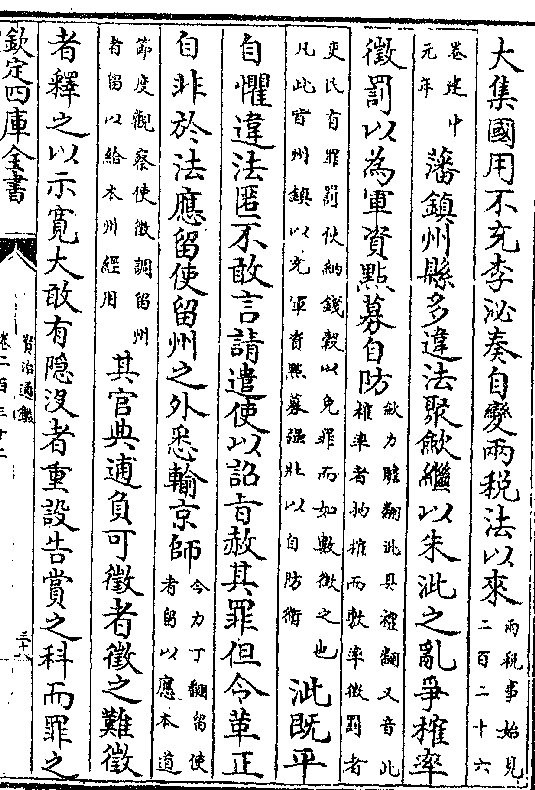 大集國用不充李泌奏自變兩税法以來
兩税事始見
二百二十六
卷建中
元年
藩鎮州縣多違法聚歛繼以朱泚之亂爭榷率
徵罰以為軍資點募自防
歛力贍翻泚具禮翻又音此
榷率者拘榷而敷率徵罰者
吏民有罪罰使納錢穀以免罪而如數徵之也
凡此皆州鎮以充軍資點募强壯以自防衛
泚既平
自懼違法匿不敢言請遣使以詔旨赦其罪但令革正
自非於法應留使留州之外悉輸京師
令力丁翻留使
者留以應本道
節度觀察使徵調留州
者留以給本州經用
其官典逋負可徵者徵之難徵
者釋之以示寛大敢有隐没者重設告賞之科而罪之
欽定四庫全書
資治通鑑
卷二百三十二